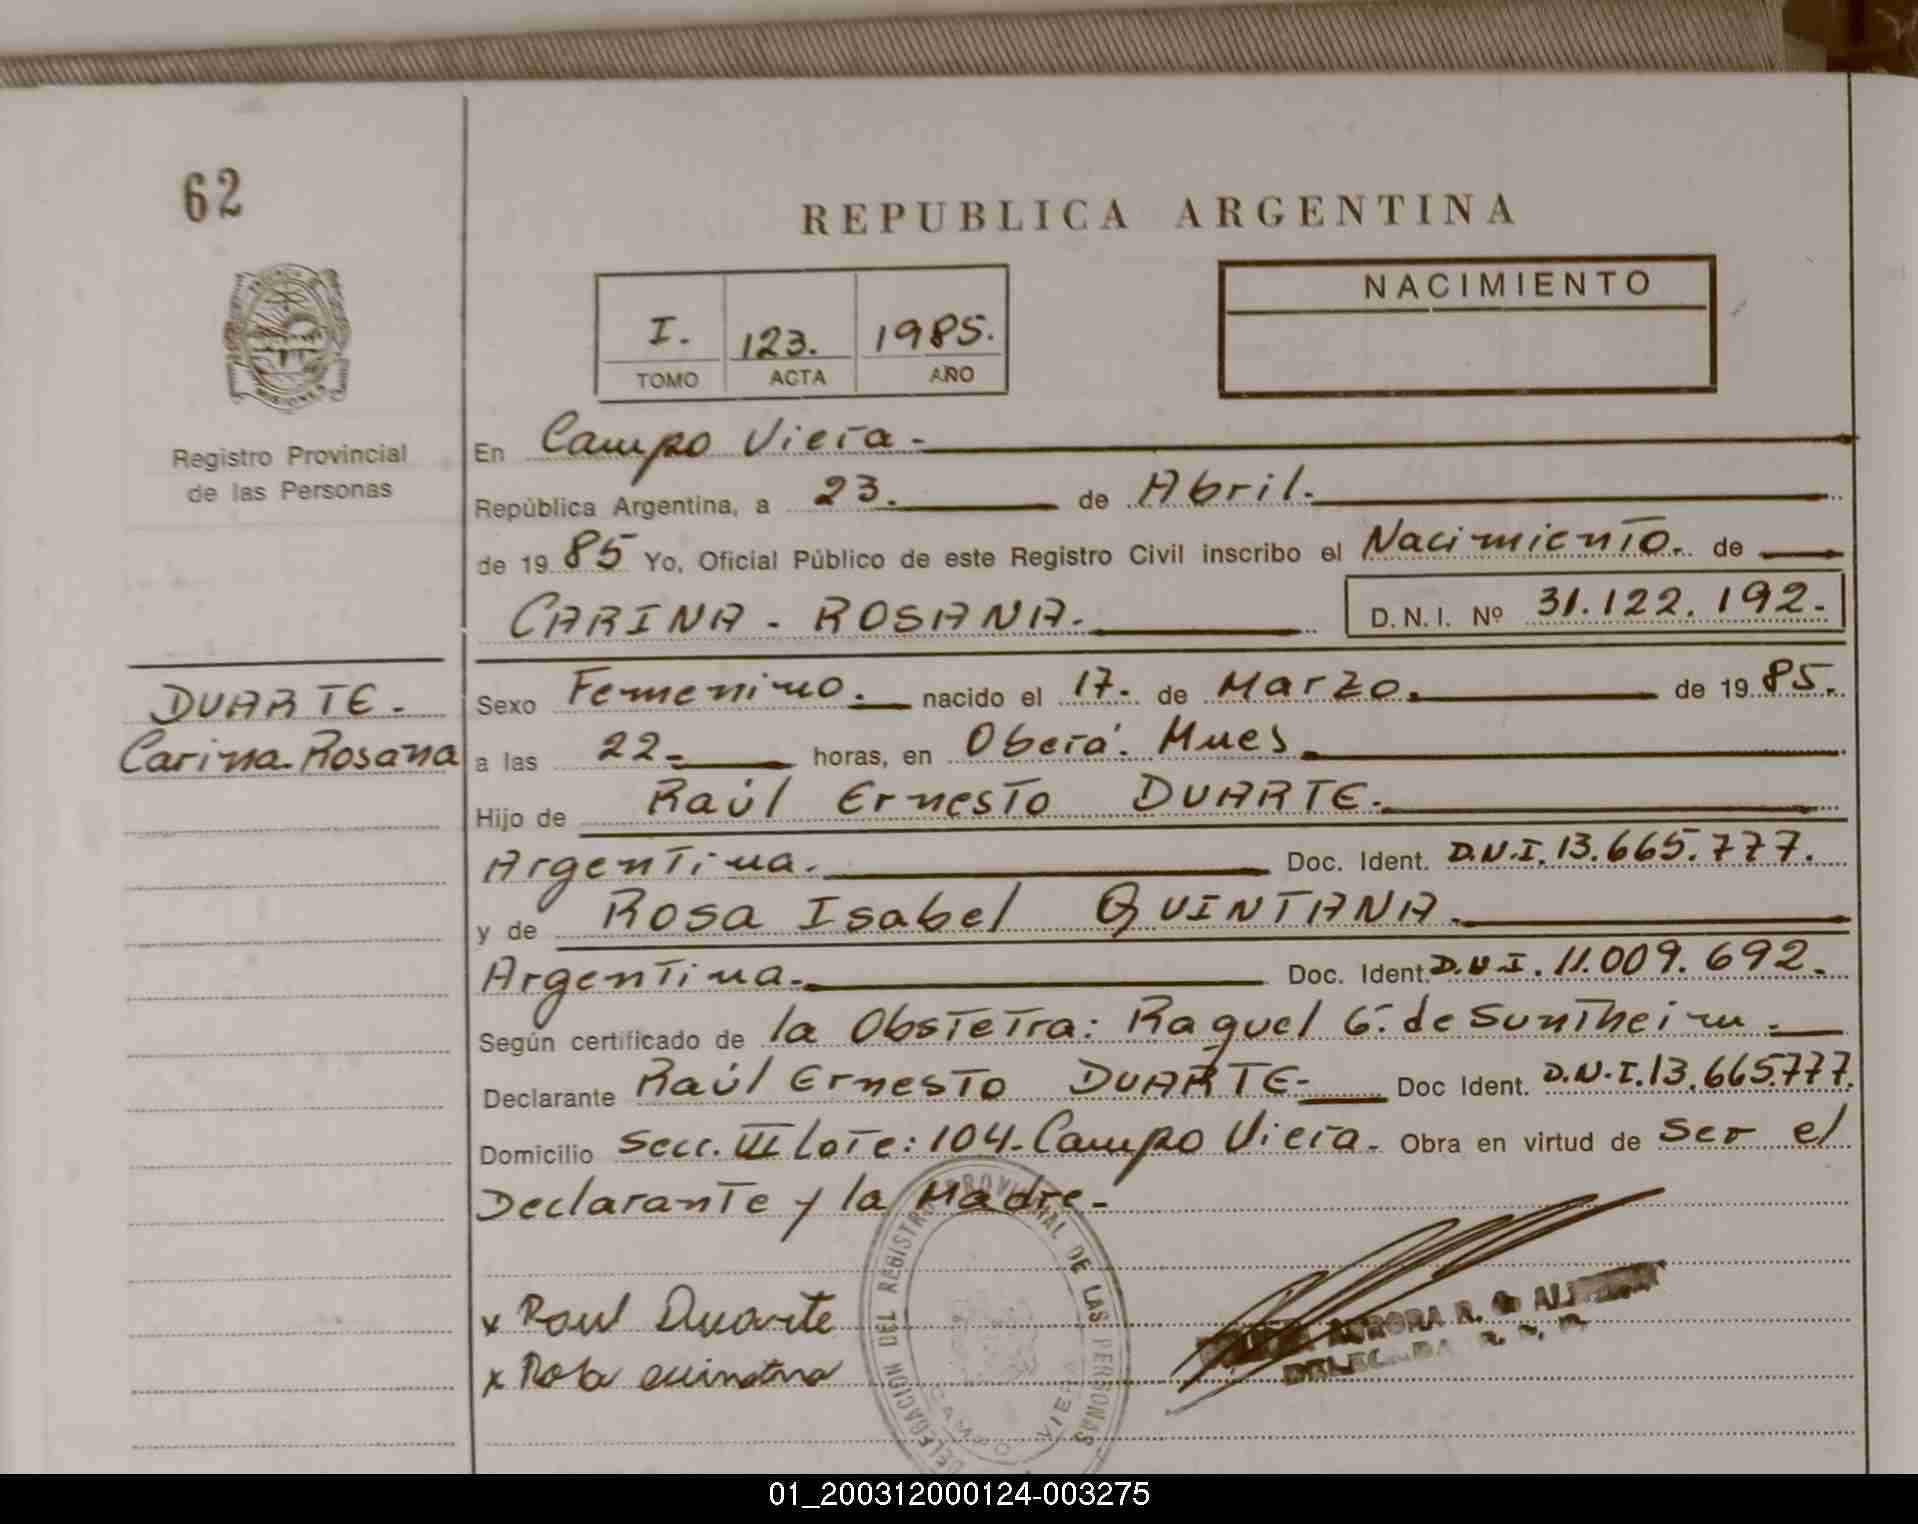 62
REPUBLICA ARGENTINA
NACIMIENTO
I. 123. 1985.
TOMO ACTA AÑO
Registro Provincial
de las Personas
En Campo Viera.
República Argentina, a 23. de Abril.
de 19 85 Yo, Oficial Público de este Registro Civil inscribo el Nacimiento. de
CARINA - ROSANA. D.N.I. Nº 31.122.192.
DUARTE.
Carina Rosana
Sexo Femenino. nacido el 17. de Marzo. de 19 85.
a las 22. horas, en Oberá. Mnes.
Hijo de Raúl Ernesto DUARTE.
Argentina. Doc. Ident. D.N.I. 13.665.777.
y de Rosa Isabel QUINTANA.
Argentina. Doc. Ident. D.N.I. 11.009.692.
Según certificado de la Obstetra: Raquel G. de Suntheim.
Declarante Raúl Ernesto DUARTE- Doc Ident. D.N.I. 13.665.777.
Domicilio Secc. III Lote: 104- Campo Viera. Obra en virtud de Ser el
Declarante y la Madre-
x Raul Duarte
x Rosa Quintana
DELEGACION DEL REGISTRO PROVINCIAL DE LAS PERSONAS
CAMPO VIERA
AURORA R.
DELEGADA
01_200312000124-003275